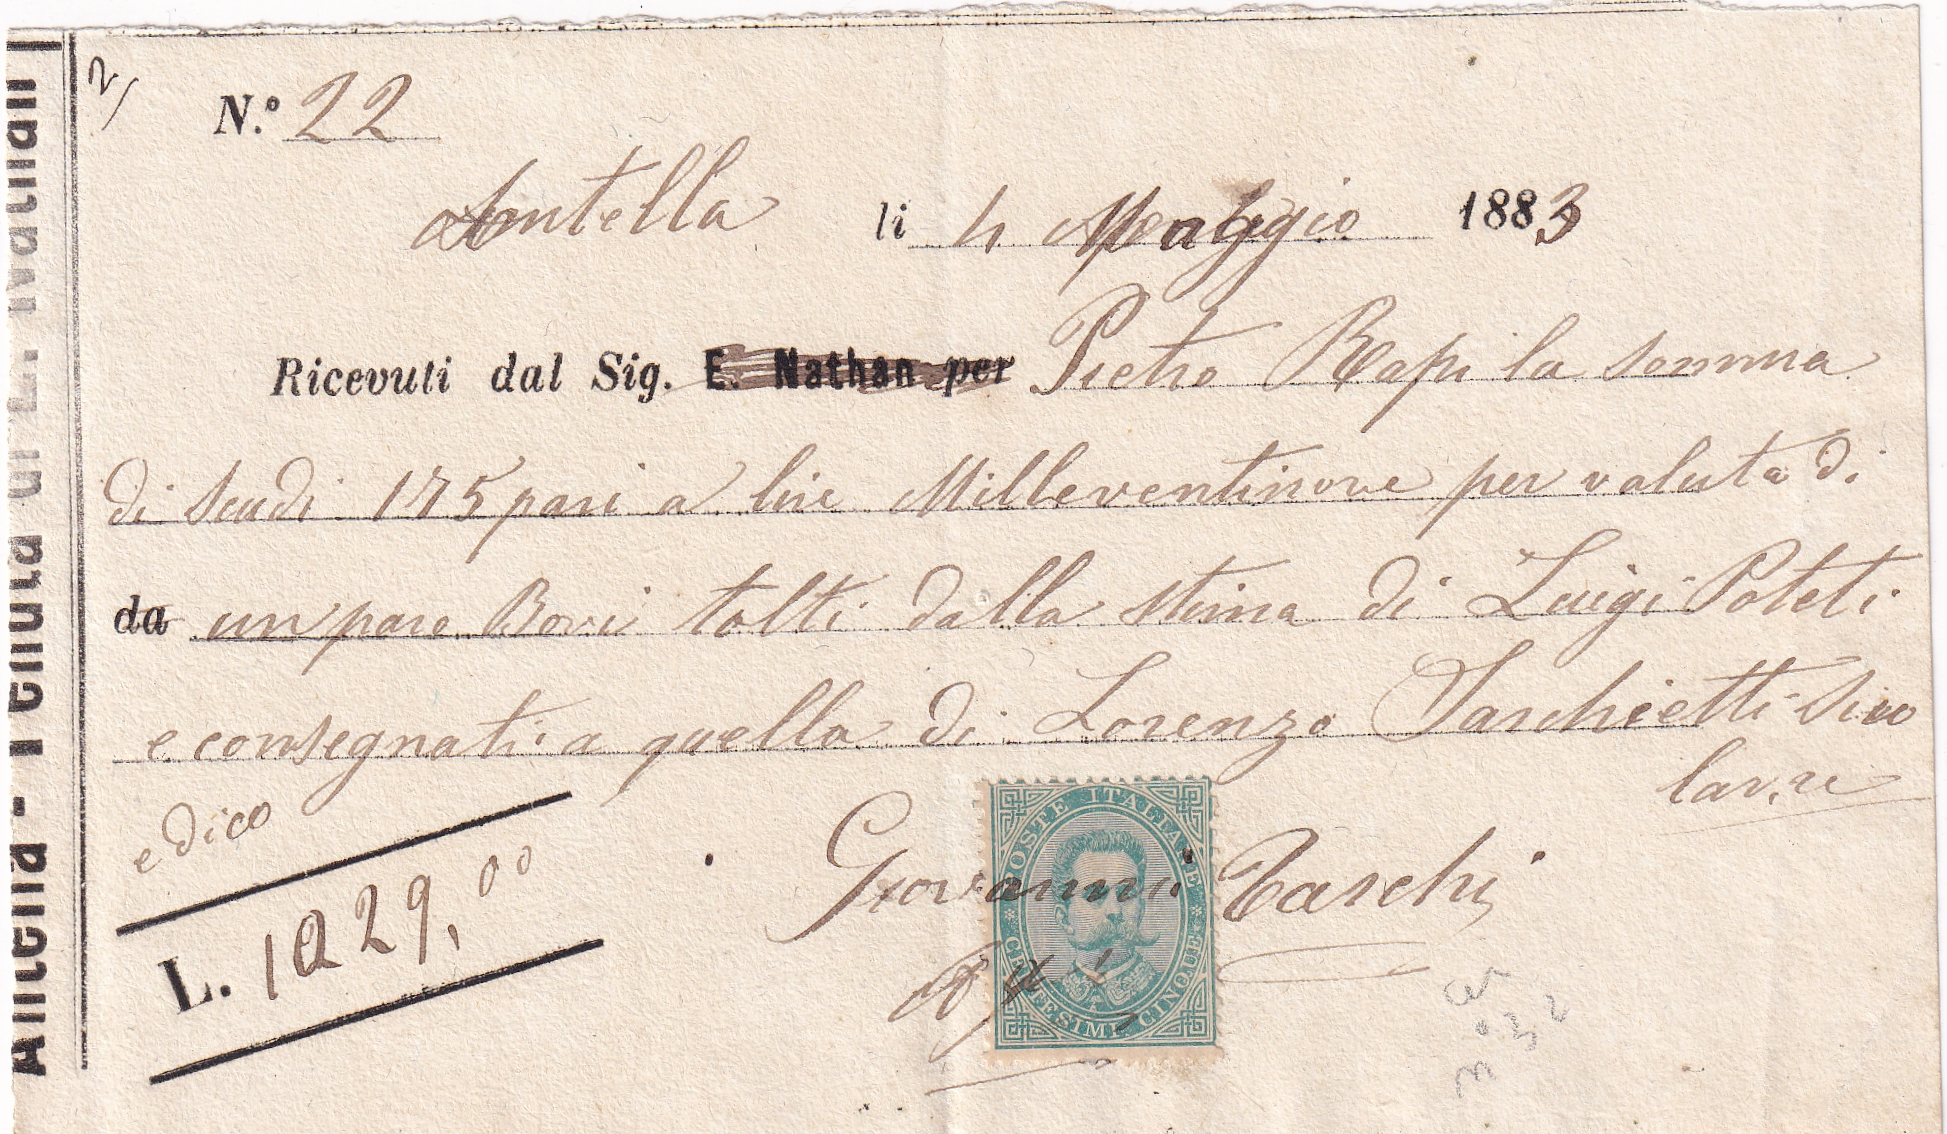 Antella - Tenuta di E. Nathan
2/
N.º 22
Antella li 4 Maggio 1883
Ricevuti dal Sig. E. Nathan per Pietro Rapi la somma
di scudi 175 pari a lire Milleventinove per valuta di
da un paro Bovi tolti dalla stima di Luigi Poteti
e consegnati a quella di Lorenzo Tarchietti
e dico
L. 1029,00
Giovanni Taschi
POSTE ITALIANE
CENTESIMI CINQUE